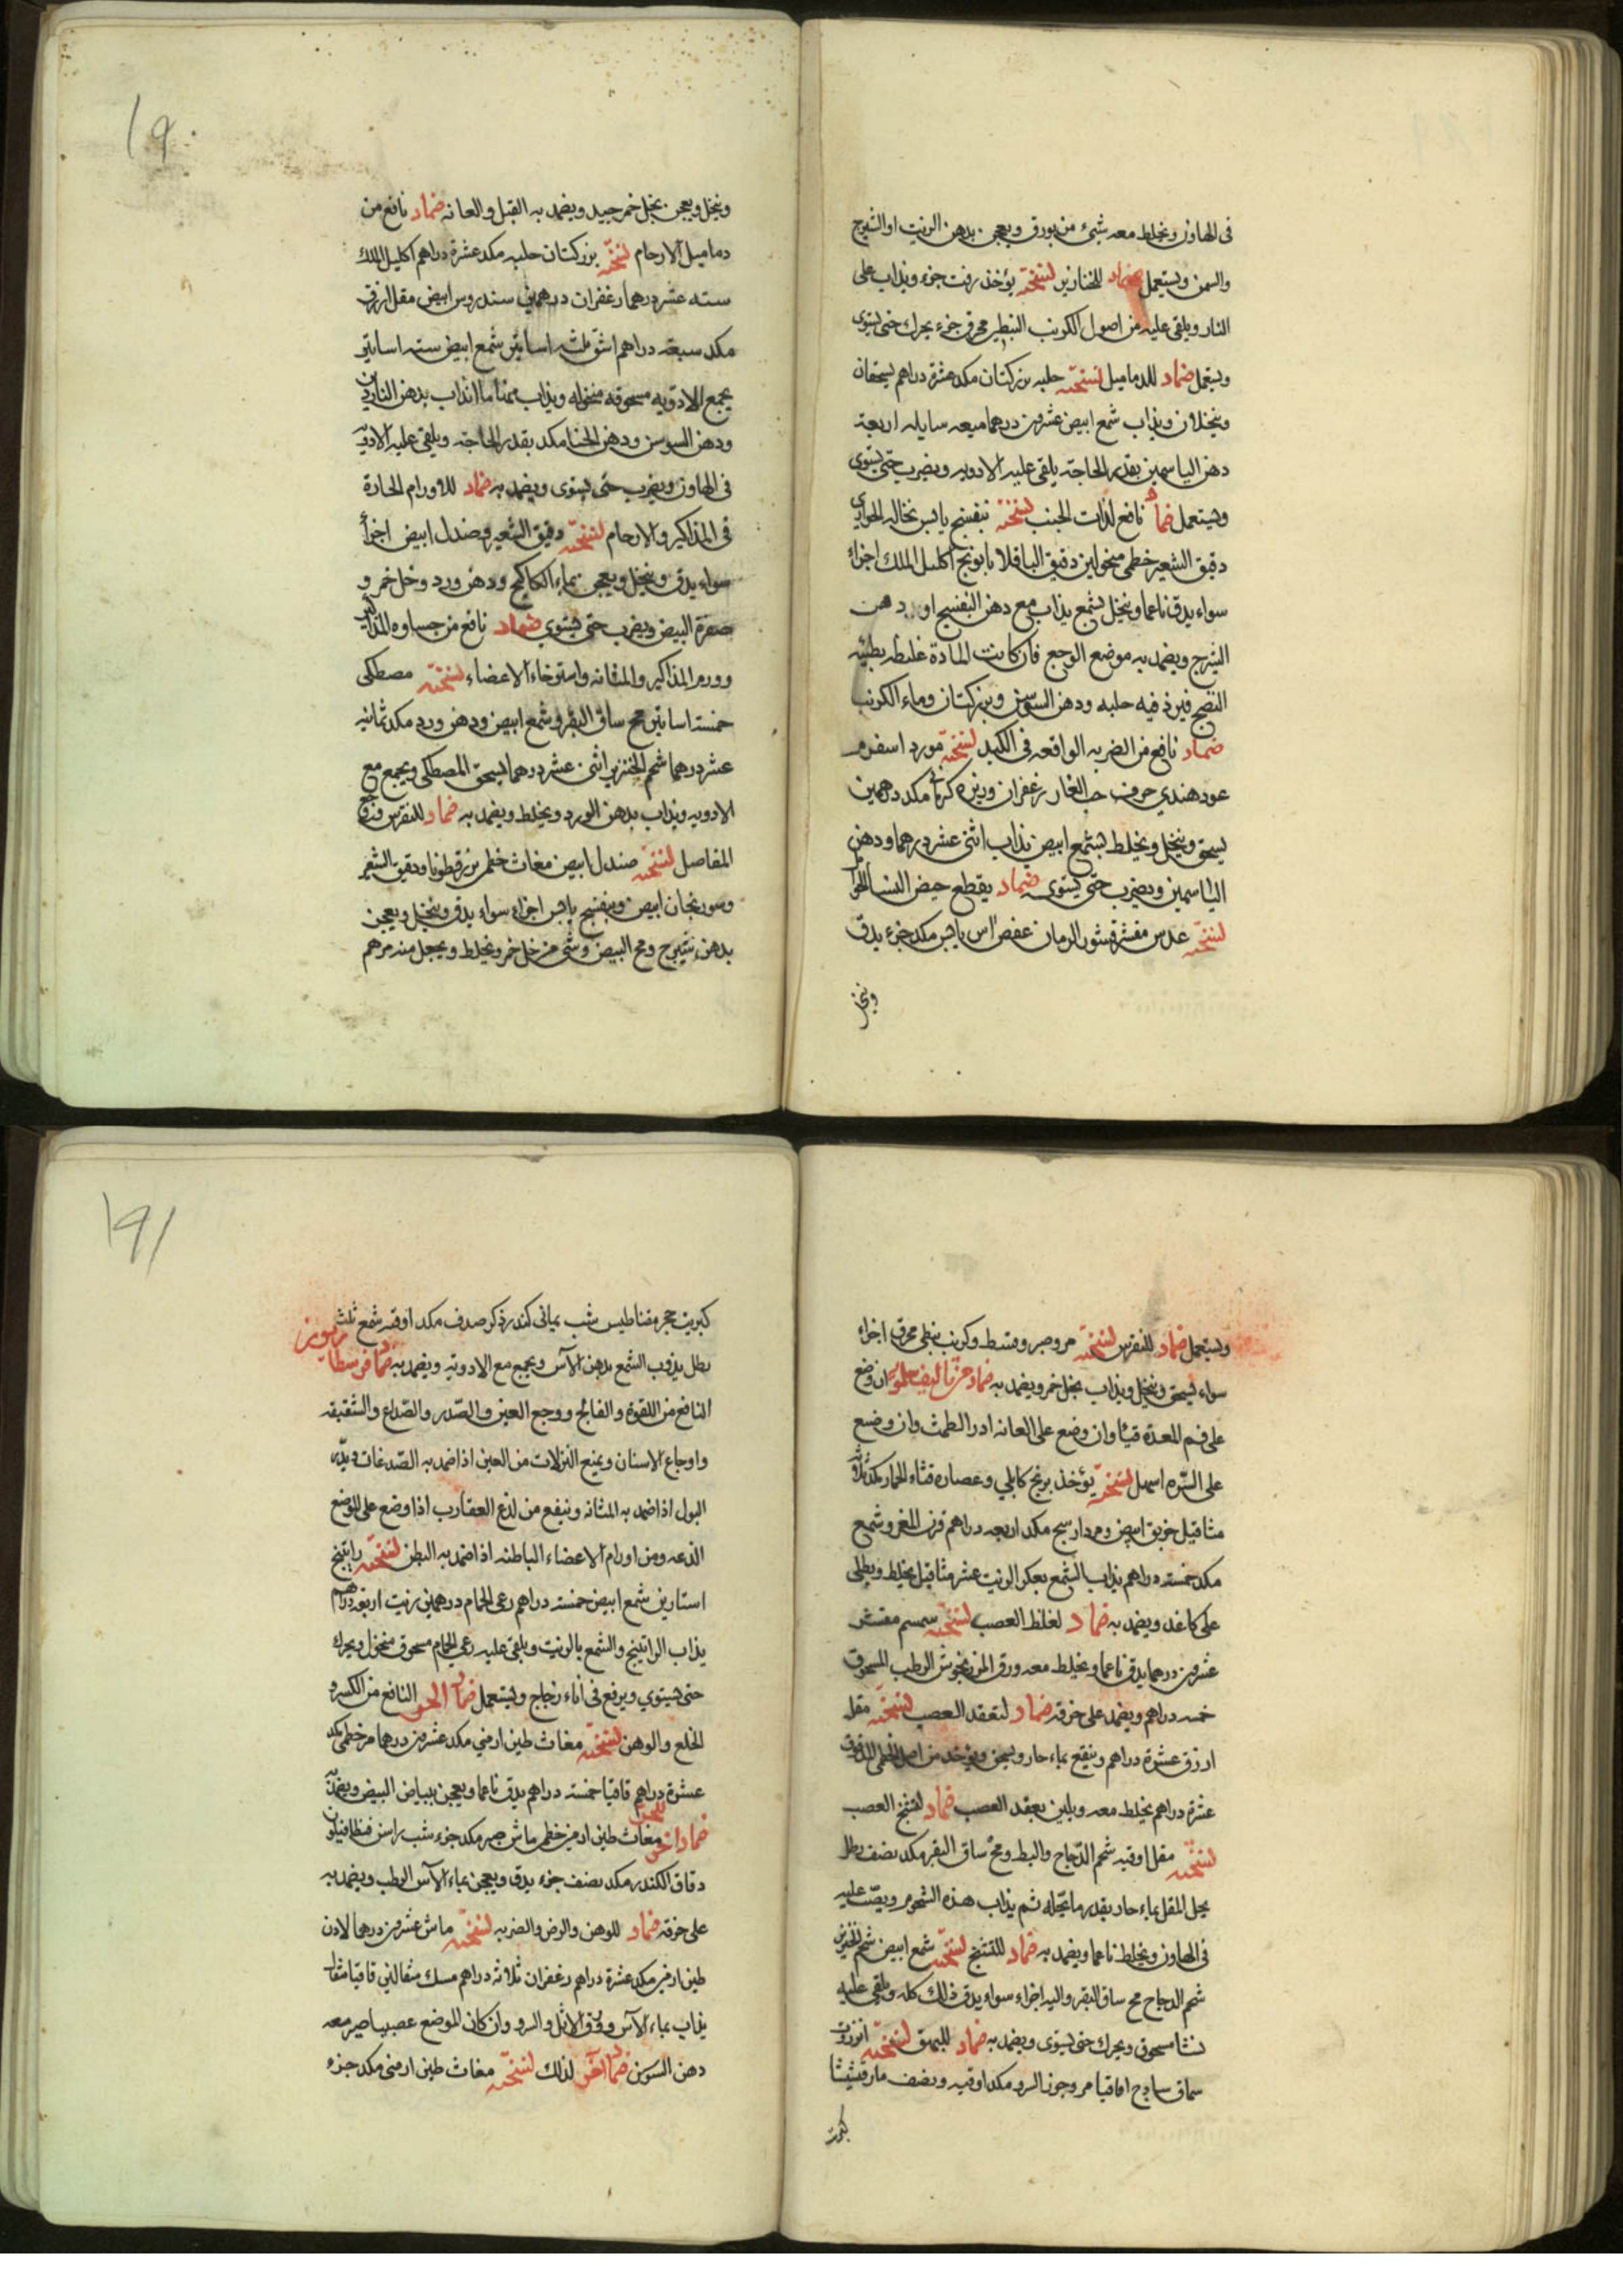 فى الهاون ويخلط معه شئ من بورق ويعجن بدهن الزيت او الشيرج
والسمن ويستعمل ضماد للخنازير نسخته يؤخذ زفت جزء ويذاب على
النار ويلقى عليه من اصول الكرنب النبطى محرق جزء يحرك حتى يستوى
ويستعمل ضماد للدماميل نسخته حلبه بزر كتان مكد عشرة دراهم يسحقان
وينخلان ويذاب شمع ابيض عشرين درهما ميعه سايله اربعة
دهن الياسمين بقدر الحاجة يلقى عليه الادويه ويضرب حتى يستوى
ويستعمل ضماد نافع لذات الجنب نسخته بنفسج يابس نخاله الحوارى
دقيق الشعير خطمى منخولين دقيق الباقلا بابونج اكليل الملك اجزاء
سواء يدق ناعما وينخل بشمع يذاب مع دهن البنفسج او دهن
الشيرج ويضمد به موضع الوجع فان كانت المادة غليظه بطيئه
النضج فيزد فيه حلبه ودهن السوسن وبزر كتان وماء الكرنب
ضماد نافع من الضربه الواقعه فى الكبد نسخته مورد اسفرم
عود هندي حرف حب الغار زعفران وزيره كرمانى مكد درهمين
يسحق وينخل ويخلط بشمع ابيض يذاب اثنى عشر درهما ودهن
الياسمين ويضرب حتى يستوى ضماد يقطع حيض النساء
نسخته عدس مقشر قشور الرمان عفص اس يابس مكد جزء يدق
وينخل
وينخل ويعجن بخل خمر جيد ويضمد به القبل والعانه ضماد نافع من
دماميل الارحام نسخته بزر كتان حلبه مكد عشرة دراهم اكليل الملك
سته عشر درهما زعفران درهمين سندروس ابيض مقل ازرق
مكد سبعة دراهم اشق ثلثه اساتير شمع ابيض سته اساتير
يجمع الادويه مسحوقه منخوله ويذاب منها ما انذاب بدهن الناردين
ودهن السوسن ودهن الحنا مكد بقدر الحاجة ويلقى عليه الادويه
فى الهاون ويضرب حتى يستوى ويضمد به ضماد للاورام الحارة
فى المذاكير والارحام نسخته دقيق الشعير وصندل ابيض اجزأ
سواء يدق وينخل ويعجن بماء الكاكنج ودهن ورد وخل خمر و
صفرة البيض ويضرب حتى يستوي ضماد نافع من جساوه المذاكير
وورم المذاكير والمثانه واسترخاء الاعضاء نسخته مصطكى
خمسة اساتير مخ ساق البقر وشمع ابيض ودهن ورد مكد ثمانيه
عشر درهما شحم الخنزير اثنى عشر درهما يسحق المصطكى ويجمع مع
الادويه ويذاب بدهن الورد ويخلط ويضمد به ضماد للنقرس ووجع
المفاصل نسخته صندل ابيض مغاث خطمى بزر قطونا ودقيق الشعير
وسورنجان ابيض وبنفسج يابس اجزاء سواء يدق وينخل ويعجن
بدهن شيرج ومح البيض وشئ من خل خمر ويخلط ويجعل منه مرهم
ويستعمل ضماد للنقرس نسخته مر وصبر وقسط وكرنب نبطى محرق اجزاء
سواء يسحق وينخل ويذاب بخل خمر ويضمد به ضماد ان وضع
على فم المعدة قيأ وان وضع على العانه ادر الطمث وان وضع
على السره اسهل نسخته يؤخذ برنج كابلي وعصارة قثاء الحمار مكد ثلاثة
مثاقيل خربق ابيض ومردارسنج مكد اربعه دراهم قرن المغر وشمع
مكد خمسه دراهم يذاب الشمع بعكر الزيت عشر مثاقيل يخلط ويطلى
على كاغد ويضمد به ضماد لغلظ العصب نسخته سمسم مقشر
عشرين درهما يدق ناعما ويخلط معه ورق المرزنجوش الرطب المسحوق
خمسه دراهم ويضمد على خرقه ضماد لتعقد العصب نسخته مقل
ازرق عشرة دراهم وينقع بماء حار ويسحق ويؤخذ من اصل الخطمى المدقوق
عشرة دراهم يخلط معه ويلين بعقد العصب ضماد لتشنج العصب
نسخته مقل اوقيه شحم الدجاج والبط ومخ ساق البقر مكد نصف رطل
يحل المقل بماء حار بقدر ما يحله ثم يذاب هذه الشحوم ويصب عليه
فى الهاون ويخلط ناعما ويضمد به ضماد للتشنج نسخته شمع ابيض شحم الخنزير
شحم الدجاج مخ ساق البقر واليه اجزاء سواء يدق ذلك كله ويلقى عليه
نشا مسحوق ويحرك حتى يستوى ويضمد به ضماد للبهق نسخته انزروت
سماق ساذج اقاقيا مر وجوز السرو مكد اوقيه ونصف مارقشيثا
كبريت
كبريت حجر مغناطيس شب يمانى كندر ذكر صدف مكد اوقيه شمع ثلث
رطل يذوب الشمع بدهن الآس ويجمع مع الادويه ويضمد به ضماد
النافع من اللقوة والفالج ووجع العين والصدر والصداع والشقيقه
واوجاع الاسنان ويمنع النزلات من العين اذا ضمد به الصدغان ويدر
البول اذا ضمد به المثانه وينفع من لذع العقارب اذا وضع على الموضع
الذعه ومن اورام الاعضاء الباطنه اذا ضمد به البطن نسخته راتينج
استارين شمع ابيض خمسه دراهم رعى الحمام درهمين زيت اربعه دراهم
يذاب الراتينج والشمع بالزيت ويلقى عليه رعى الحمام مسحوق منخول ويحرك
حتى يستوي ويرفع فى اناء زجاج ويستعمل ضماد النافع من الكسر و
الخلع والوهن نسخته مغاث طين ارمني مكد عشرين درهما مر خطمى مكد
عشرة دراهم قاقيا خمسه دراهم يدق ناعما ويعجن ببياض البيض ويضمد به
ضماد اخر مغاث طين ارمنى خطمى ماش صبر مكد جزء شب راسن
دقاق الكندر مكد نصف جزء يدق ويعجن بماء الآس الرطب ويضمد به
على خرقه ضماد للوهن والرض والضربه نسخته ماش عشرين درهما لادن
طين ارمنى مكد عشرة دراهم زعفران ثلاثه دراهم مسك مثقالين قاقيا مثقال
يذاب بماء الآس وورق الاثل والسرو وان كان الموضع عصبيا صير معه
دهن السوسن ضماد اخر لذلك نسخته مغاث طين ارمنى مكد جزء